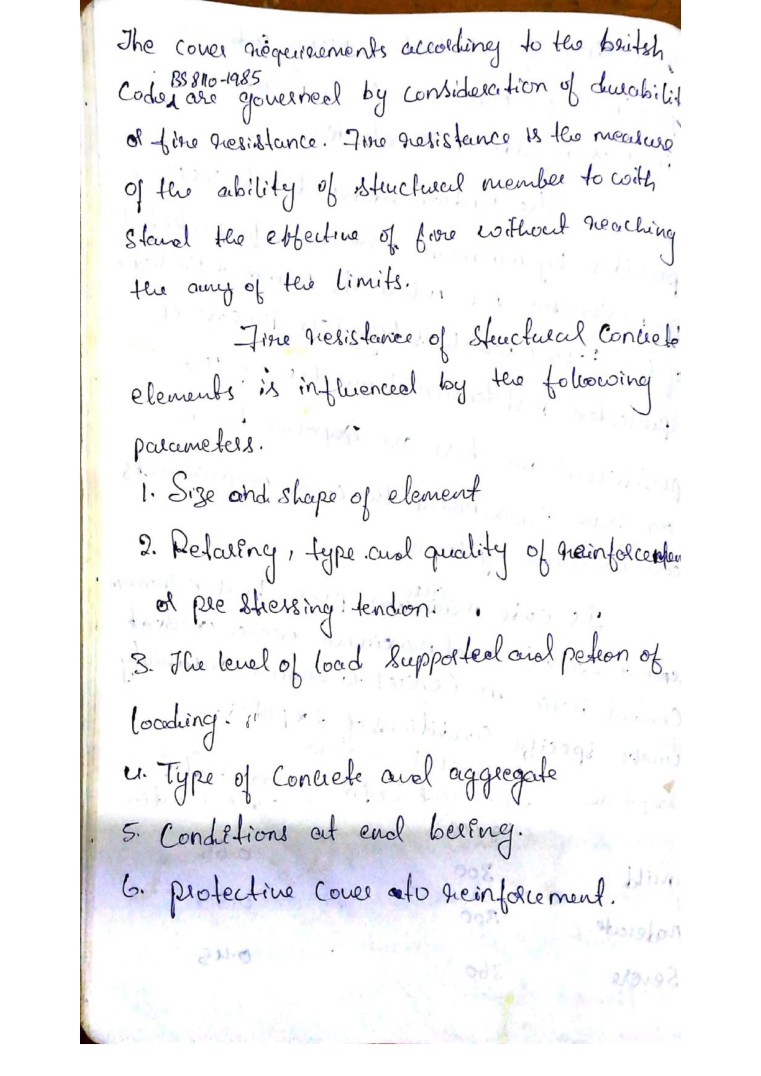 The cover requirements according to the britsh
BS 8110-1985
Codes are governed by consideration of durabilit
of fire resistance. Fire resistance is the measure
of the ability of structural member to with
stand the effective of fire without reaching
the any of the limits.
Fire resistance of structural Concrete
elements is influenced by the following
parameters.
1. Size and shape of element
2. Detailing, type and quality of reinforcemen
of pre stressing tendion.
3. The level of load supported and petron of
loading.
4. Type of Concrete and aggregate
5. Conditions at end bering.
6. protective cover to reinforcement.